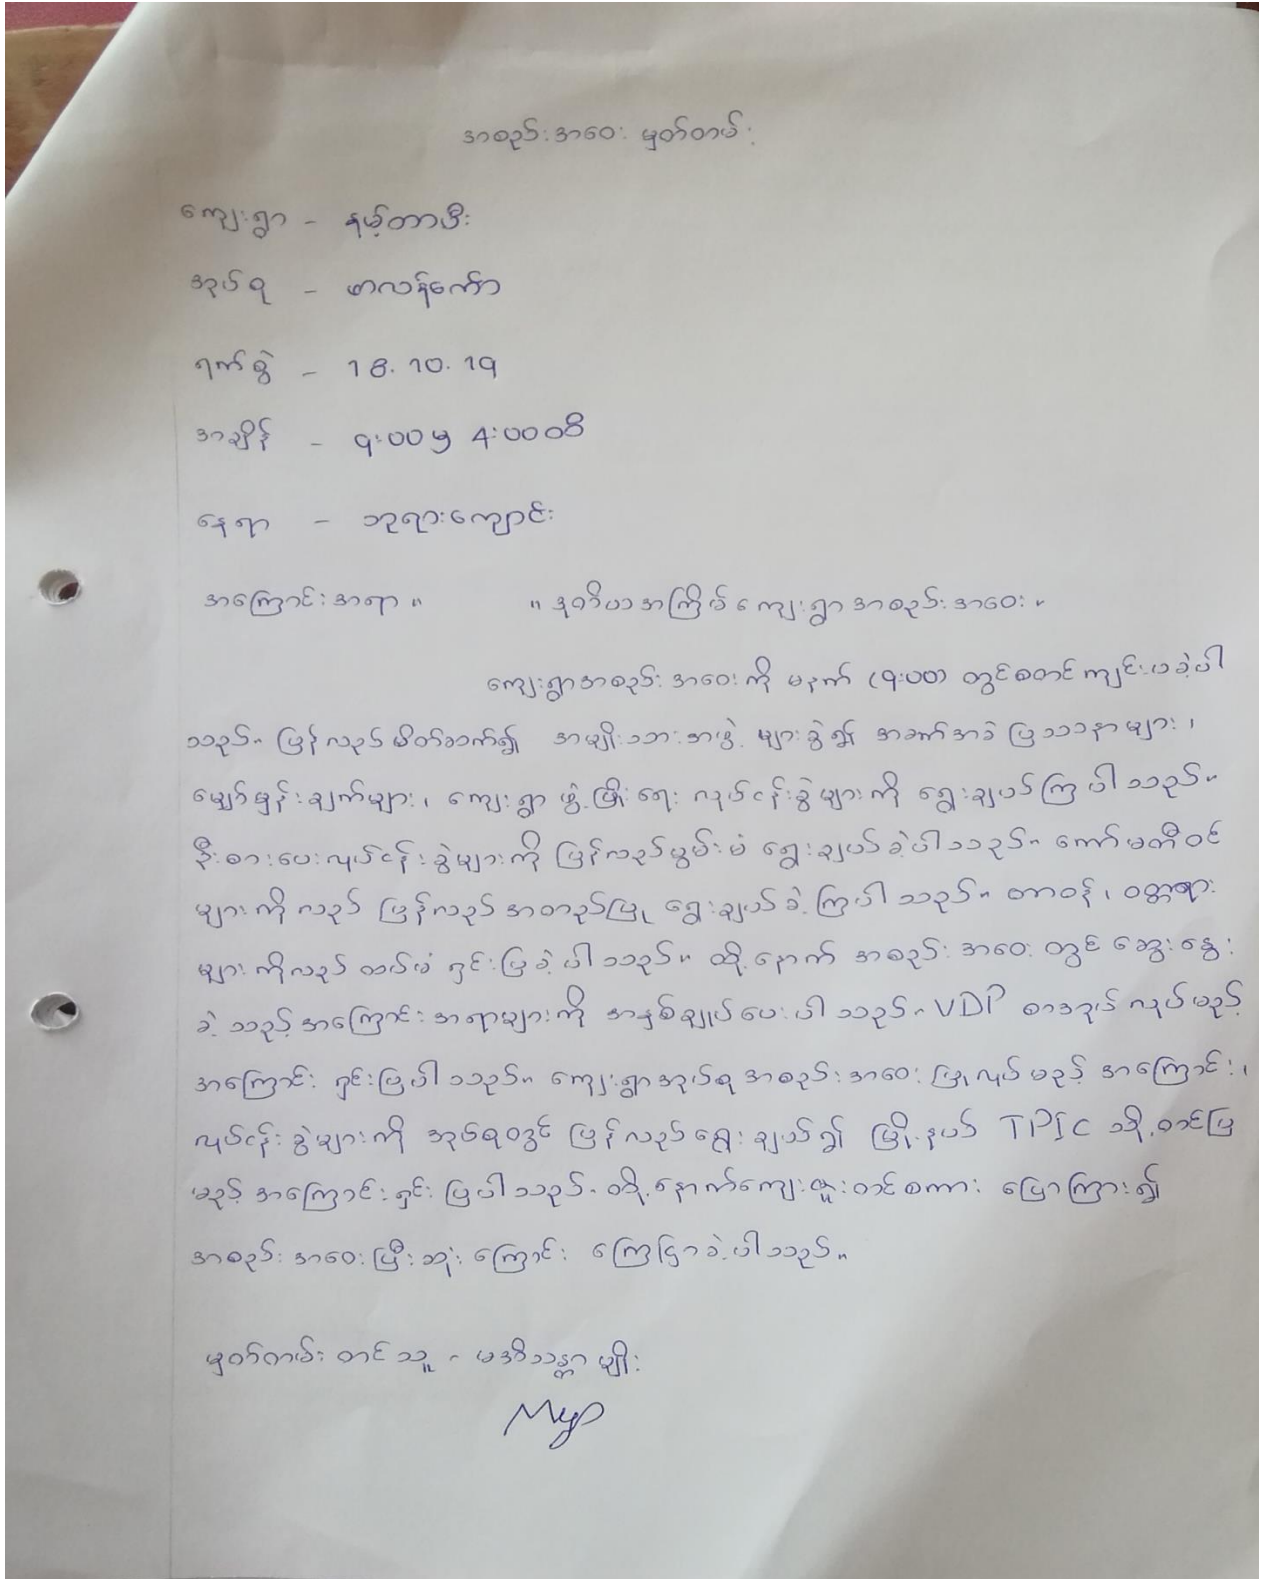 အစည်းအဝေး မှတ်တမ်း
ကျေးရွာ - နမ့်တာဖီး
အုပ်စု - ဖာလန်ကော်
ရက်စွဲ - 18.10.19
အချိန် - 9:00 မှ 4:00 ထိ
နေရာ - ဘုရားကျောင်း
အကြောင်းအရာ ။ ။ ဒုတိယအကြိမ် ကျေးရွာအစည်းအဝေး ။
ကျေးရွာအစည်းအဝေးကို မနက် (9:00) တွင်စတင်ကျင်းပခဲ့ပါ
သည်။ ပြန်လည်မိတ်ဆက်၍ အမျိုးသားအဖွဲ့ များခွဲ၍ အခက်အခဲ ပြဿနာများ ၊
မျှော်မှန်းချက်များ ၊ ကျေးရွာ ဖွံ့ဖြိုးရေး လုပ်ငန်းခွဲများကို ရွေးချယ်ကြပါသည်။
ဦးစားပေးလုပ်ငန်းခွဲများကို ပြန်လည်မွမ်းမံ ရွေးချယ်ခဲ့ပါသည်။ ကော်မတီဝင်
များကိုလည် ပြန်လည်အတည်ပြု ရွေးချယ်ခဲ့ကြပါသည်။ တာဝန် ၊ ဝတ္တရား
များကိုလည် ထပ်မံ ရှင်းပြခဲ့ပါသည်။ ထို့နောက် အစည်းအဝေးတွင် ဆွေးနွေး
ခဲ့သည့်အကြောင်းအရာများကို အနှစ်ချုပ်ပေးပါသည်။ VDP စာအုပ် လုပ်မည့်
အကြောင်း ရှင်းပြပါသည်။ ကျေးရွာအုပ်စု အစည်းအဝေး ပြုလုပ်မည့် အကြောင်း ၊
လုပ်ငန်းခွဲများကို အုပ်စုတွင် ပြန်လည်ရွေးချယ်၍ မြို့နယ် TPIC သို့တင်ပြ
မည့် အကြောင်းရှင်းပြပါသည်။ ထို့နောက်ကျေးဇူးတင်စကား ပြောကြား၍
အစည်းအဝေးပြီးဆုံးကြောင်း ကြေငြာခဲ့ပါသည်။
မှတ်တမ်းတင်သူ - မအိသန္တာမျိုး